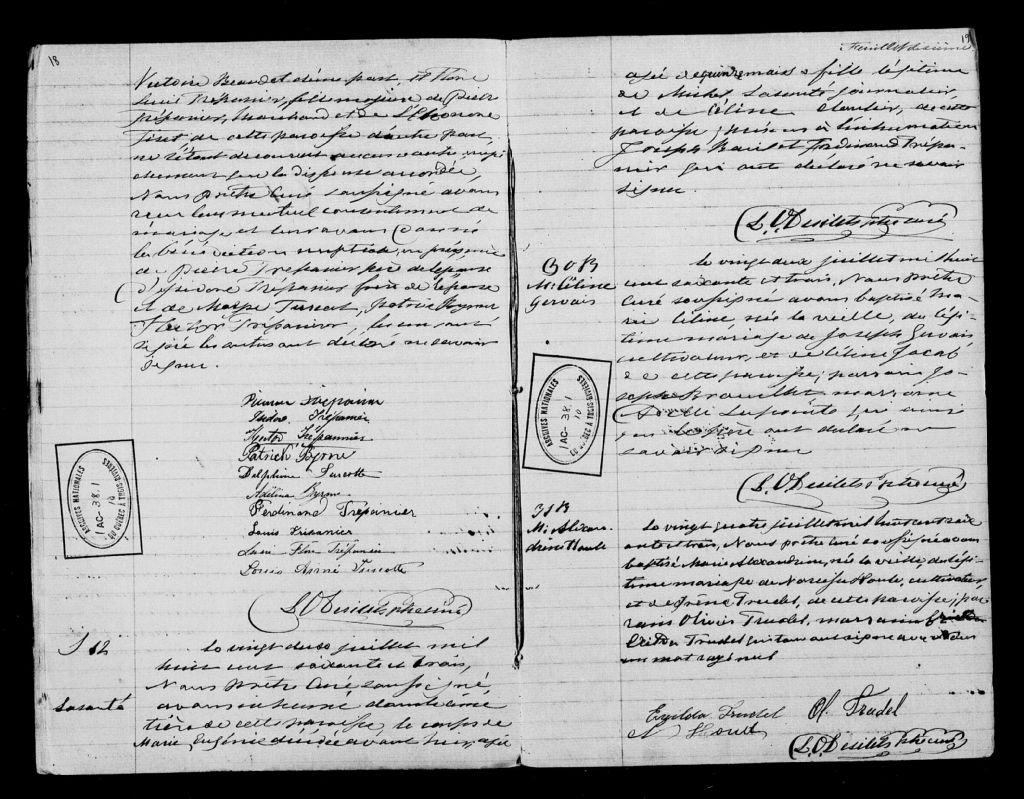 18
Victoire Beaudet d'une part et Flore
Trépanier, fille majeure de Pierre
Trépanier, Marchand et de Eléonore
de cette paroisse d'autre part
ne s'étant découvert aucun autre empê
chement que la dispense accordée,
Nous Prêtre Curé soussigné avons
reçu leur mutuel consentement de
mariage et leur avons donné
la bénédiction nuptiale en présence
de Pierre Trépanier père de l'épouse
d'Isidore Trépanier frère de l'épouse
et de Turcot, Patrice Byrne
Hector Trépanier, les uns ont
signé les autres ont déclaré ne savoir
signer.
Pierre Trépanier
Isidore Trépanier
Hector Trépannier
Patrick Byrne
Delphine Turcotte
Byrne
Ferdinand Trépanier
Louis Trépanier
Flore Trépanier
Louis Turcotte
L. O. Desilets Ptre curé
S 12
Lasanté
Le vingt deux juillet mil
huit cent soixante et trois,
Nous Prêtre Curé soussigné,
avons inhumé dans le cime
tière de cette paroisse le corps de
Marie Eugénie décédée avant hier, agée
ARCHIVES NATIONALES
IAC-38.1
10
DU QUÉBEC À TROIS-RIVIÈRES
19
Feuillet dixième
agée de quinze mois fille légitime
de Michel Lasanté journalier,
et de Céline Cloutier, de cette
paroisse; présens à l'inhumation
Joseph et Ferdinand Trépa-
nier qui ont déclaré ne savoir
signer.
L. O. Desilets Ptre curé
B O B
M. Céline
Gervais
Le vingt deux juillet mil huit
cent soixante et trois, Nous Prêtre
curé soussigné avons baptisé Ma
rie Céline, née la veille, du légi
time mariage de Joseph Gervais
cultivateur, et de Céline Jacob
de cette paroisse; parrain Jo-
seph Brouillet, marraine
Lapointe qui ainsi
que le père ont déclaré ne
savoir signer
L. O. Desilets Ptre curé
ARCHIVES NATIONALES
IAC-38.1
10
DU QUÉBEC À TROIS-RIVIÈRES
31 B
M. Alexan
drine Houle
Le vingt quatre juillet mil huit cent soix
ante et trois, Nous Prêtre curé soussigné avons
baptisé Marie Alexandrine, née la veille, du légi
time mariage de Narcisse Houle, cultivateur,
et de Irène Trudel, de cette paroisse; par
rain Olivier Trudel, marraine
Trudel qui ont signé avec nous
un mot rayé nul
Exilda Trudel Ol. Trudel
N Houle
L. O. Desilets Ptre curé